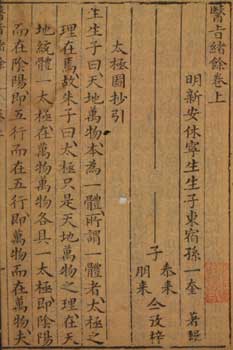 醫旨緒餘卷上
明新安休寧生生子東宿孫一奎 著輯
子 泰來 朋來 仝攷梓
太極圖抄引
生生子曰天地萬物本為一體所謂一體者太極之
理在焉故朱子曰太極只是天地萬物之理在天
地統體一太極在萬物萬物各具一太極即陰陽
而在陰陽即五行而在五行即萬物而在萬物夫